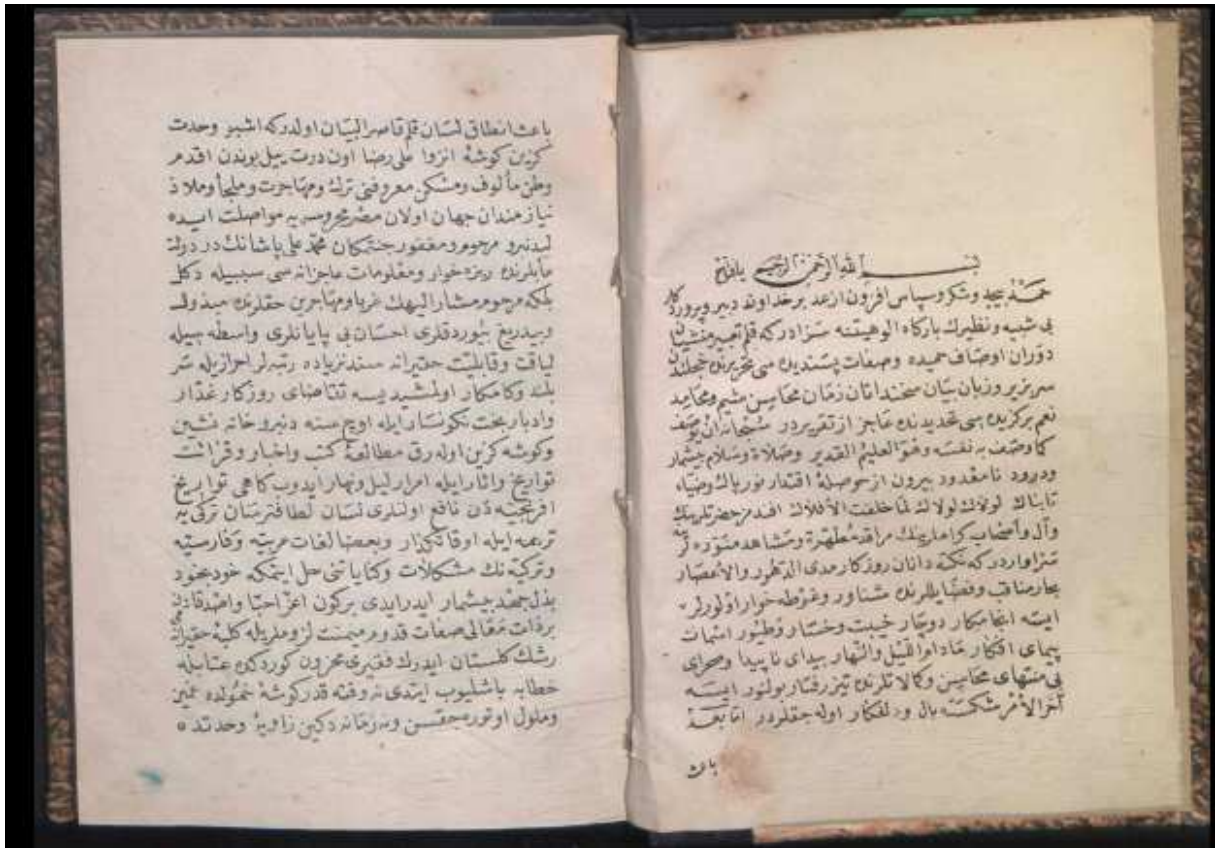 بسم الله الرحمن الرحيم يا فتاح
حمد بيحد وشكر وسپاس افزون ازعد بر خداوند دبير وپروردكار
بی شبيه ونظيرك باركاه الوهيتنه سزادر كه قلم تعبير منشيان
دوران اوصاف حميده وصفات پسنديده سی تحريرنده خجلتدن
سر بزير وزبان بيان سخندانان زمان محاسن شيم ومحامد
نعم بركزيده سی تحديدنده عاجز از تقريردر سبحانه ان يوصف
كما وصف به نفسه وهو العليم القدير وصلاة وسلام بيشمار
ودرود نامعدود بيرون از حوصلهٔ اقتدار نور پاك وضياء
تابناك لولاك لولاك لما خلقت الأفلاك افندمز حضرتلرينك
وآل وأصحاب كراملرينك مراقد مطهرة ومشاهد منوره لرينه
سزاواردر كه نكته دانان روزكار مدی الدهور والأعصار
بحار مناقب وفضايلرنده شناور وغوطه خوار اولورلر
ايسه انجامكار دوچار خيبت وخسار وطيور
پيمای افكار مادام الليل والنهار بيدای ناپيدا وصحرای
بی منتهای محاسن وكمالاتلرنده تيزرفتار بولنور ايسه
آخر الأمر شكسته بال ودلفكار اوله جقلردر اما بعد
باعث
باعث انطاق لسان قلم قاصر البيان اولدر كه اشبو وحدت
كزين كوشهٔ انزوا علی رضا اون درت ييل بوندن اقدم
وطن مألوف ومسكن معروفنی ترك ومهاجرت وملجأ وملاذ
نيازمندان جهان اولان مصر محروسه يه مواصلت ايده
ليدنبرو مرحوم ومغفور جنتمكان محمد علی پاشانك در دولت
مآبلرنده ريزه خوار ومعلومات عاجزانه سی سببيله دكل
بلكه مرحوم مشار اليهك غربا ومهاجرين حقلرنده مبذول
وبيدريغ بيوردقلری احسان بی پايانلری واسطه سيله
لياقت وقابليت حقيرانه سندن زياده رتبه لر احرازيله سر
بلند وكامكار اولمشيديسه تقاضای روزكار غدار
وادبار بخت نكونسار ايله اوچ سنه دنبرو خانه نشين
وكوشه كزين اوله رق مطالعهٔ كتب واخبار وقرائت
تواريخ واثار ايله امرار ليل ونهار ايدوب كاهی تواريخ
افرنجيه دن نافع اولنلری لسان لطافترسان تركی يه
ترجمه ايله اوقاتكذار وبعضا لغات عربيه وفارسيه
وتركيه نك مشكلات وكناياتنی حل ايتمكه خود بخود
بذل جهد بيشمار ايدرايدی بركون اعز احبا واصدقادن
بر ذات معالی صفات قدوم ميمنت لزوملريله كلبهٔ حقيرانه
رشك كلستان ايدرك فقيری محزون كوردكده عتابله
خطابه باشليوب ايتدی نه وقته قدر كوشهٔ خمولده غمين
وملول اوتوره جقسن ونه زمانه دكين زاويهٔ وحدتده